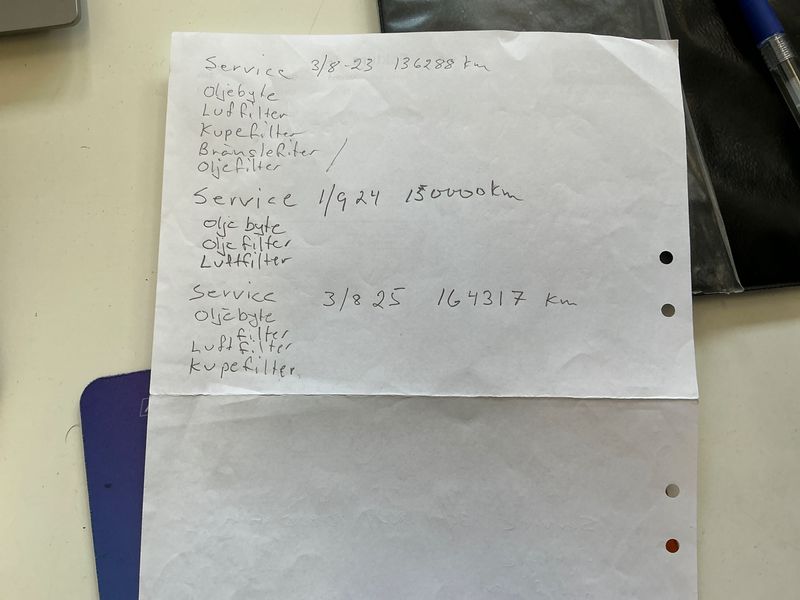 Service 3/8-23 136288 km
Oljebyte
Luftfilter
Kupefilter
Bränslefilter /
Oljefilter
Service 1/9 24 150000km
Olje byte
Olje filter
Luftfilter
Service 3/8 25 164317 km
Oljebyte
filter
Luftfilter
Kupefilter